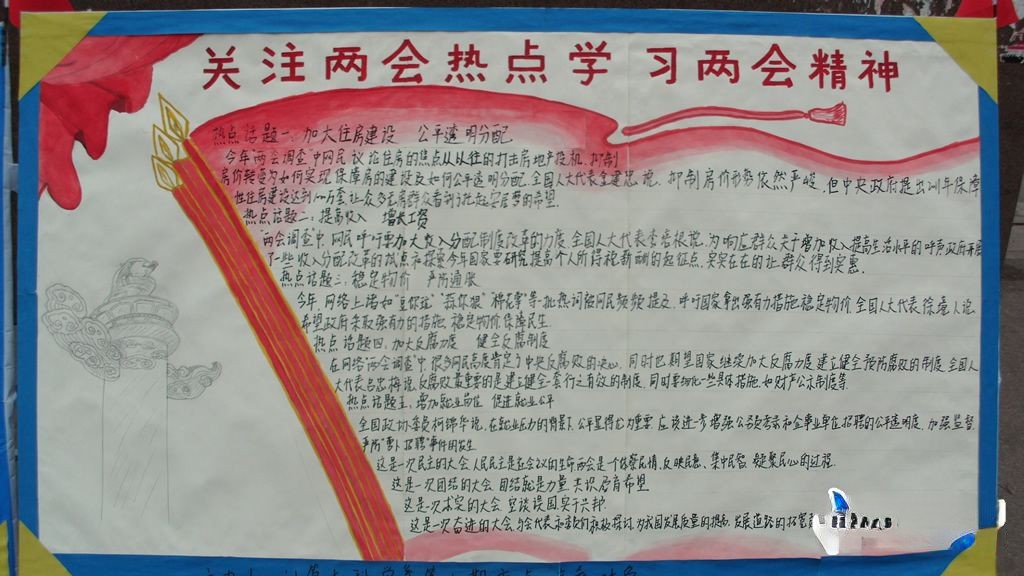 关注两会热点学习两会精神
热点话题一、加大住房建设 公平透明分配
今年两会调查中网民议论住房的焦点从以往的打击房地产投机、抑制
房价转变为如何实现保障房的建设及如何公平透明分配.全国人大代表说,抑制房价形势依然严峻,但中央政府提出2011年保障
性住房建设达到1000万套,让众多住房群众看到了
热点话题二:提高收入 增长工资
两会调查中,网民呼吁要加大收入分配制度改革的力度,全国人大代表李秀根说,为响应群众关于增加收入提高生活水平的呼声,政府开展
了一些收入分配改革的试点和探索,今年国家要研究提高个人所得税薪酬的起征点,实实在在的让群众得到实惠.
热点话题三:稳定物价 严防通胀
今年网络上诸如"豆你玩""蒜你狠""棉花掌"等一批热词被网民频频提及,呼吁国家拿出强有力措施,稳定物价,全国人大代表徐 说,
希望政府采取强有力的措施,稳定物价,保障民生.
热点话题四、加大反腐力度 健全反腐制度
在网络"两会调查"中,很多网民高度肯定了中央反腐败的决心,同时也期望国家继续加大反腐力度,建立健全预防腐败的制度.全国人
大代表 说,反腐败最重要的是建立健全一套行之有效的制度,同时要细化一些具体措施,如财产公示制度等
热点话题五、增加就业岗位 促进就业公平
全国政协委员柯锦华说,在就业压力的背景下,公平显得尤为重要,应该进一步增强公务员考录和企事业单位招聘的公平透明度,加强监督,
严防"萝卜招聘"事件的发生
这是一次民主的大会,人民民主是在会议的生命,两会是一个体察民情、反映民意、集中民智、凝聚民心的过程.
这是一次团结的大会,团结就是力量,共识 有希望
这是一次求实的大会,空谈误国,实干兴邦.
这是一次奋进的大会,与会代表和委员们积极探讨,为我国发展质量的提高、发展道路的拓宽